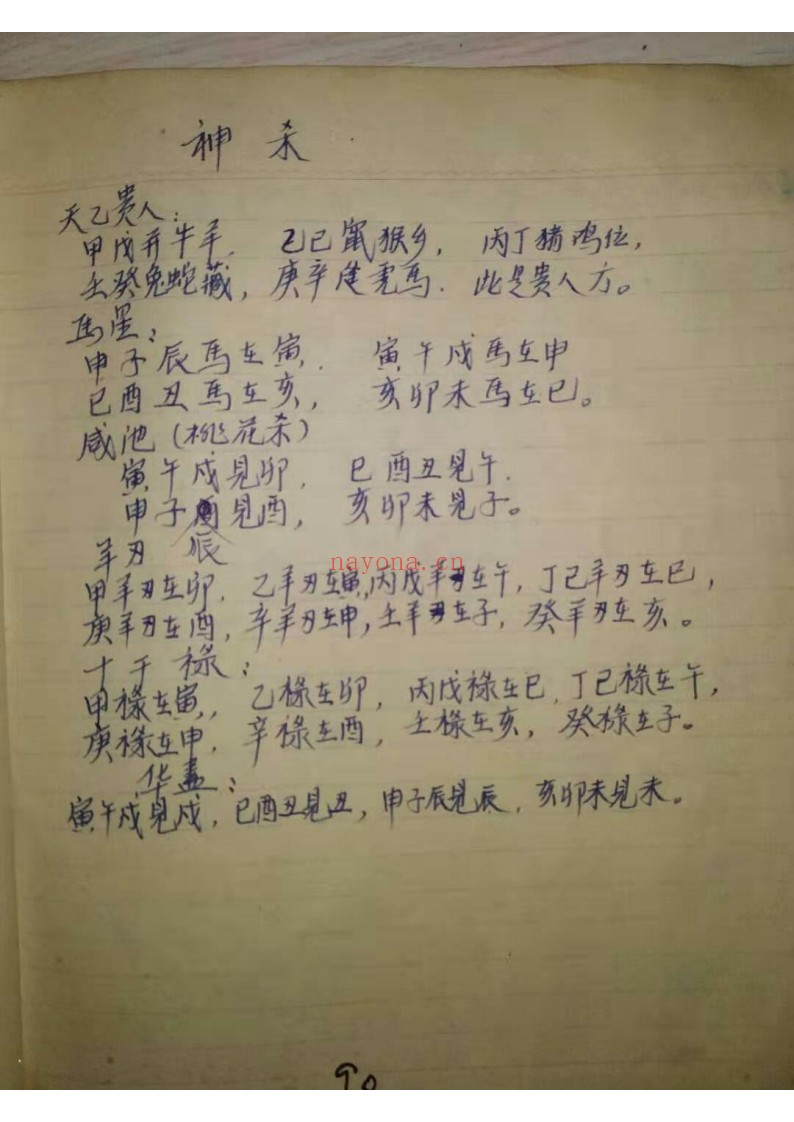 神杀
天乙贵人:
甲戊并牛羊, 乙己鼠猴乡, 丙丁猪鸡位,
壬癸兔蛇藏, 庚辛逢虎馬. 此是贵人方。
馬星:
申子辰馬在寅, 寅午戌馬在申
巳酉丑馬在亥, 亥卯未馬在巳。
咸池(桃花杀)
寅午戌見卯, 巳酉丑見午.
申子辰見酉, 亥卯未見子。
羊刃
nayona.cn
甲羊刃在卯, 乙羊刃在寅,丙戊羊刃在午, 丁己羊刃在巳,
庚羊刃在酉, 辛羊刃在申, 壬羊刃在子, 癸羊刃在亥。
十干禄:
甲禄在寅, 乙禄在卯, 丙戊禄在巳, 丁己禄在午,
庚禄在申, 辛禄在酉, 壬禄在亥, 癸禄在子。
华盖:
寅午戌見戌, 巳酉丑見丑, 申子辰見辰, 亥卯未見未。
90